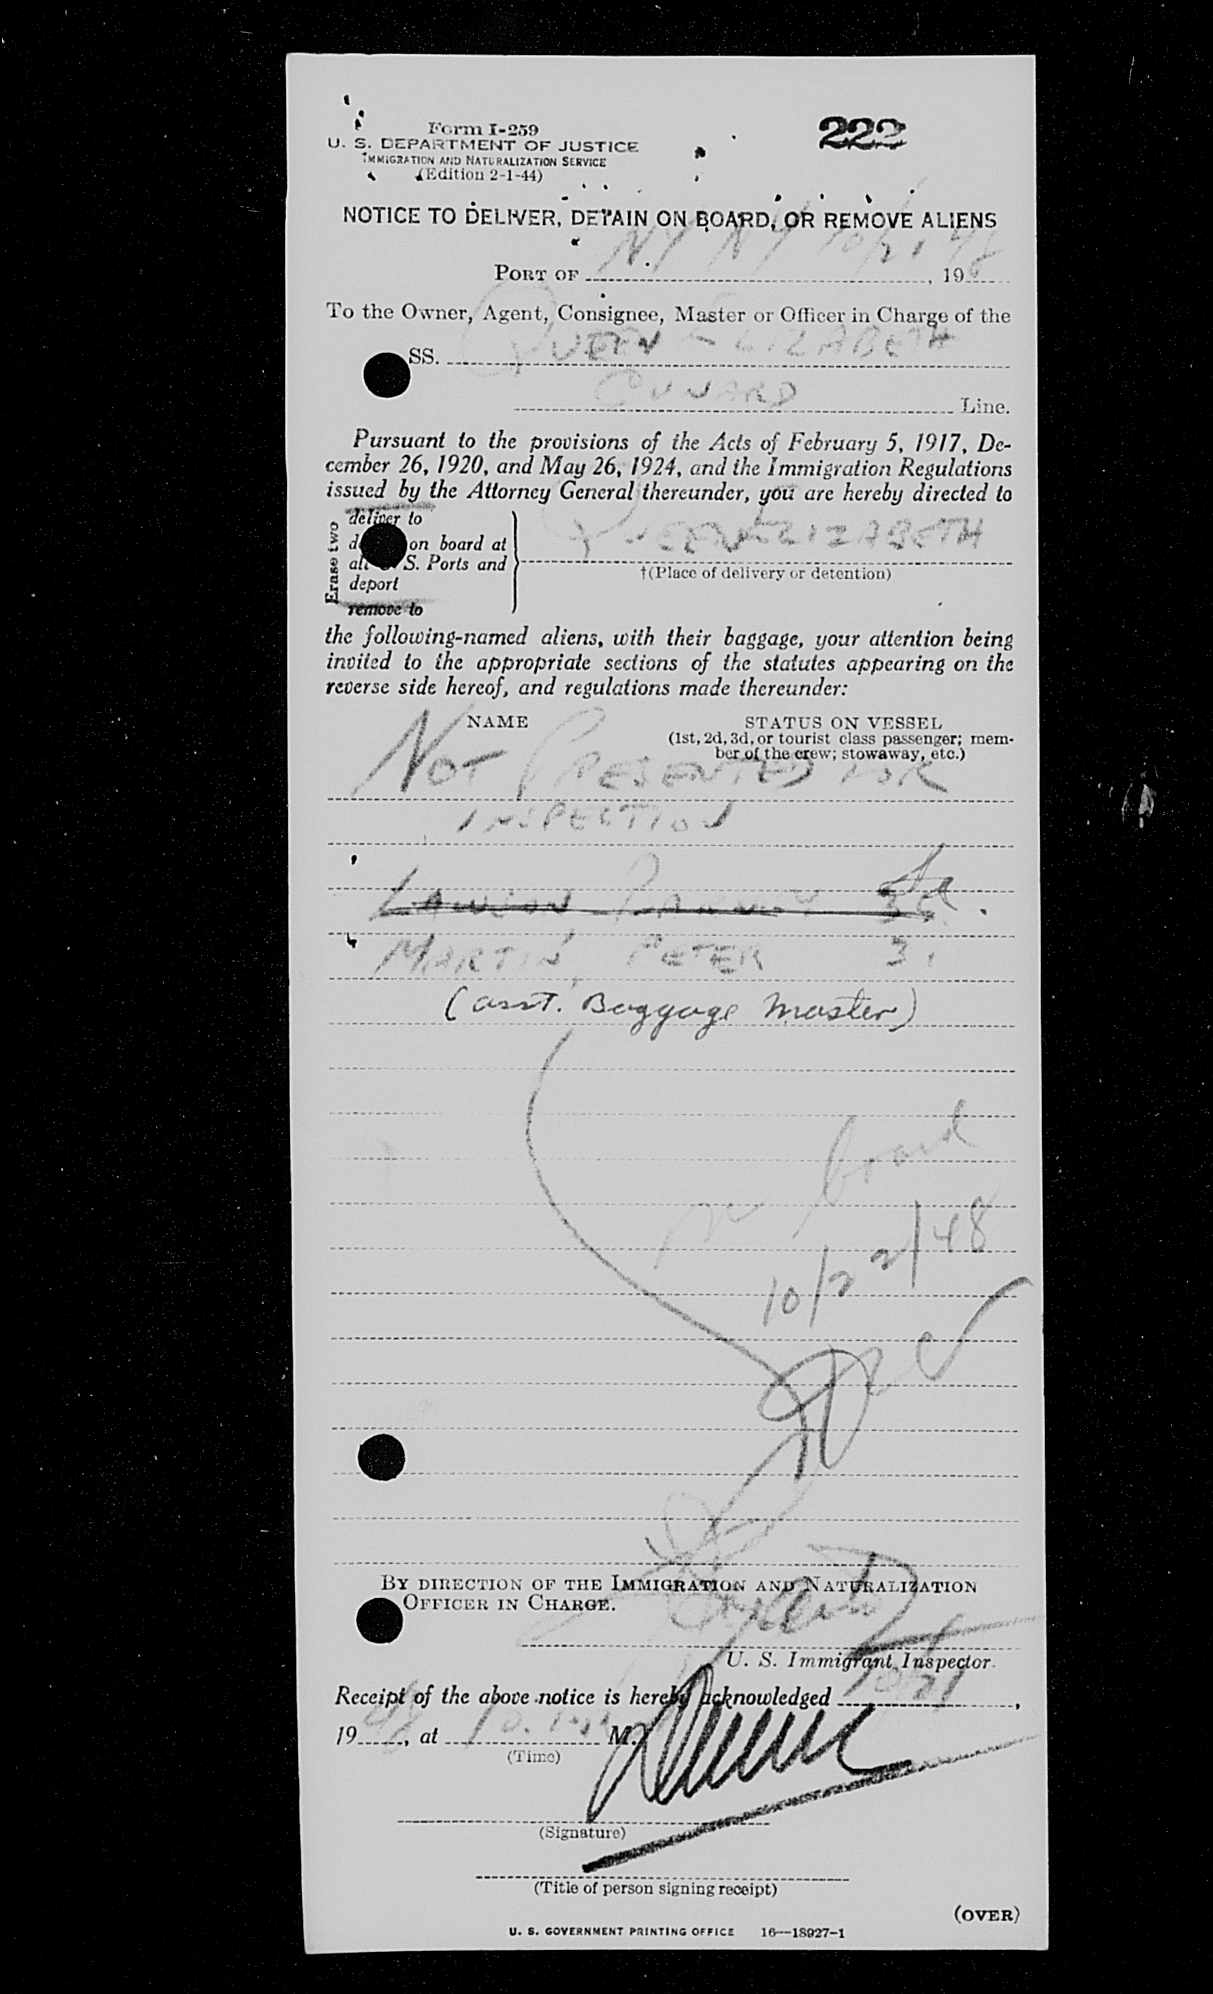 222
Form I-259
U. S. DEPARTMENT OF JUSTICE
IMMIGRATION AND NATURALIZATION SERVICE
(Edition 2-1-44)
NOTICE TO DELIVER, DETAIN ON BOARD, OR REMOVE ALIENS
PORT OF NY NY 10/21 1948
To the Owner, Agent, Consignee, Master or Officer in Charge of the
SS. QUEEN ELIZABETH
CUNARD Line.
Pursuant to the provisions of the Acts of February 5, 1917, De-
cember 26, 1920, and May 26, 1924, and the Immigration Regulations
issued by the Attorney General thereunder, you are hereby directed to
Erase two
deliver to
on board at
S. Ports and
deport
remove to
QUEEN ELIZABETH
†(Place of delivery or detention)
the following-named aliens, with their baggage, your attention being
invited to the appropriate sections of the statutes appearing on the
reverse side hereof, and regulations made thereunder:
NAME STATUS ON VESSEL
(1st, 2d, 3d, or tourist class passenger; mem-
ber of the crew; stowaway, etc.)
NOT PRESENTED FOR
INSPECTION
MARTIN PETER 3.
(asst. Baggage Master)
on board
10/22/48
BY DIRECTION OF THE IMMIGRATION AND NATURALIZATION
OFFICER IN CHARGE.
U. S. Immigrant Inspector.
Receipt of the above notice is hereby acknowledged 10/21,
1948, at M.
(Time)
(Signature)
(Title of person signing receipt)
(OVER)
U. S. GOVERNMENT PRINTING OFFICE 16—18927-1